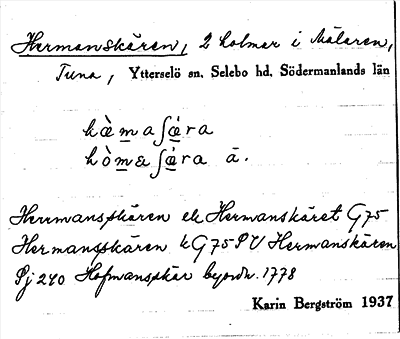 Hermanskären, 2 holmar i Mälaren,
Tuna, Ytterselö sn. Selebo hd. Södermanlands län
hæ̀maʃǽra
hòmaʃǽra ā.
Herrmansskären el. Hermanskäret G75
Hermansskären kG75PU Hermanskären
Sj240 Hofmansskär beordr. 1778
Karin Bergström 1937